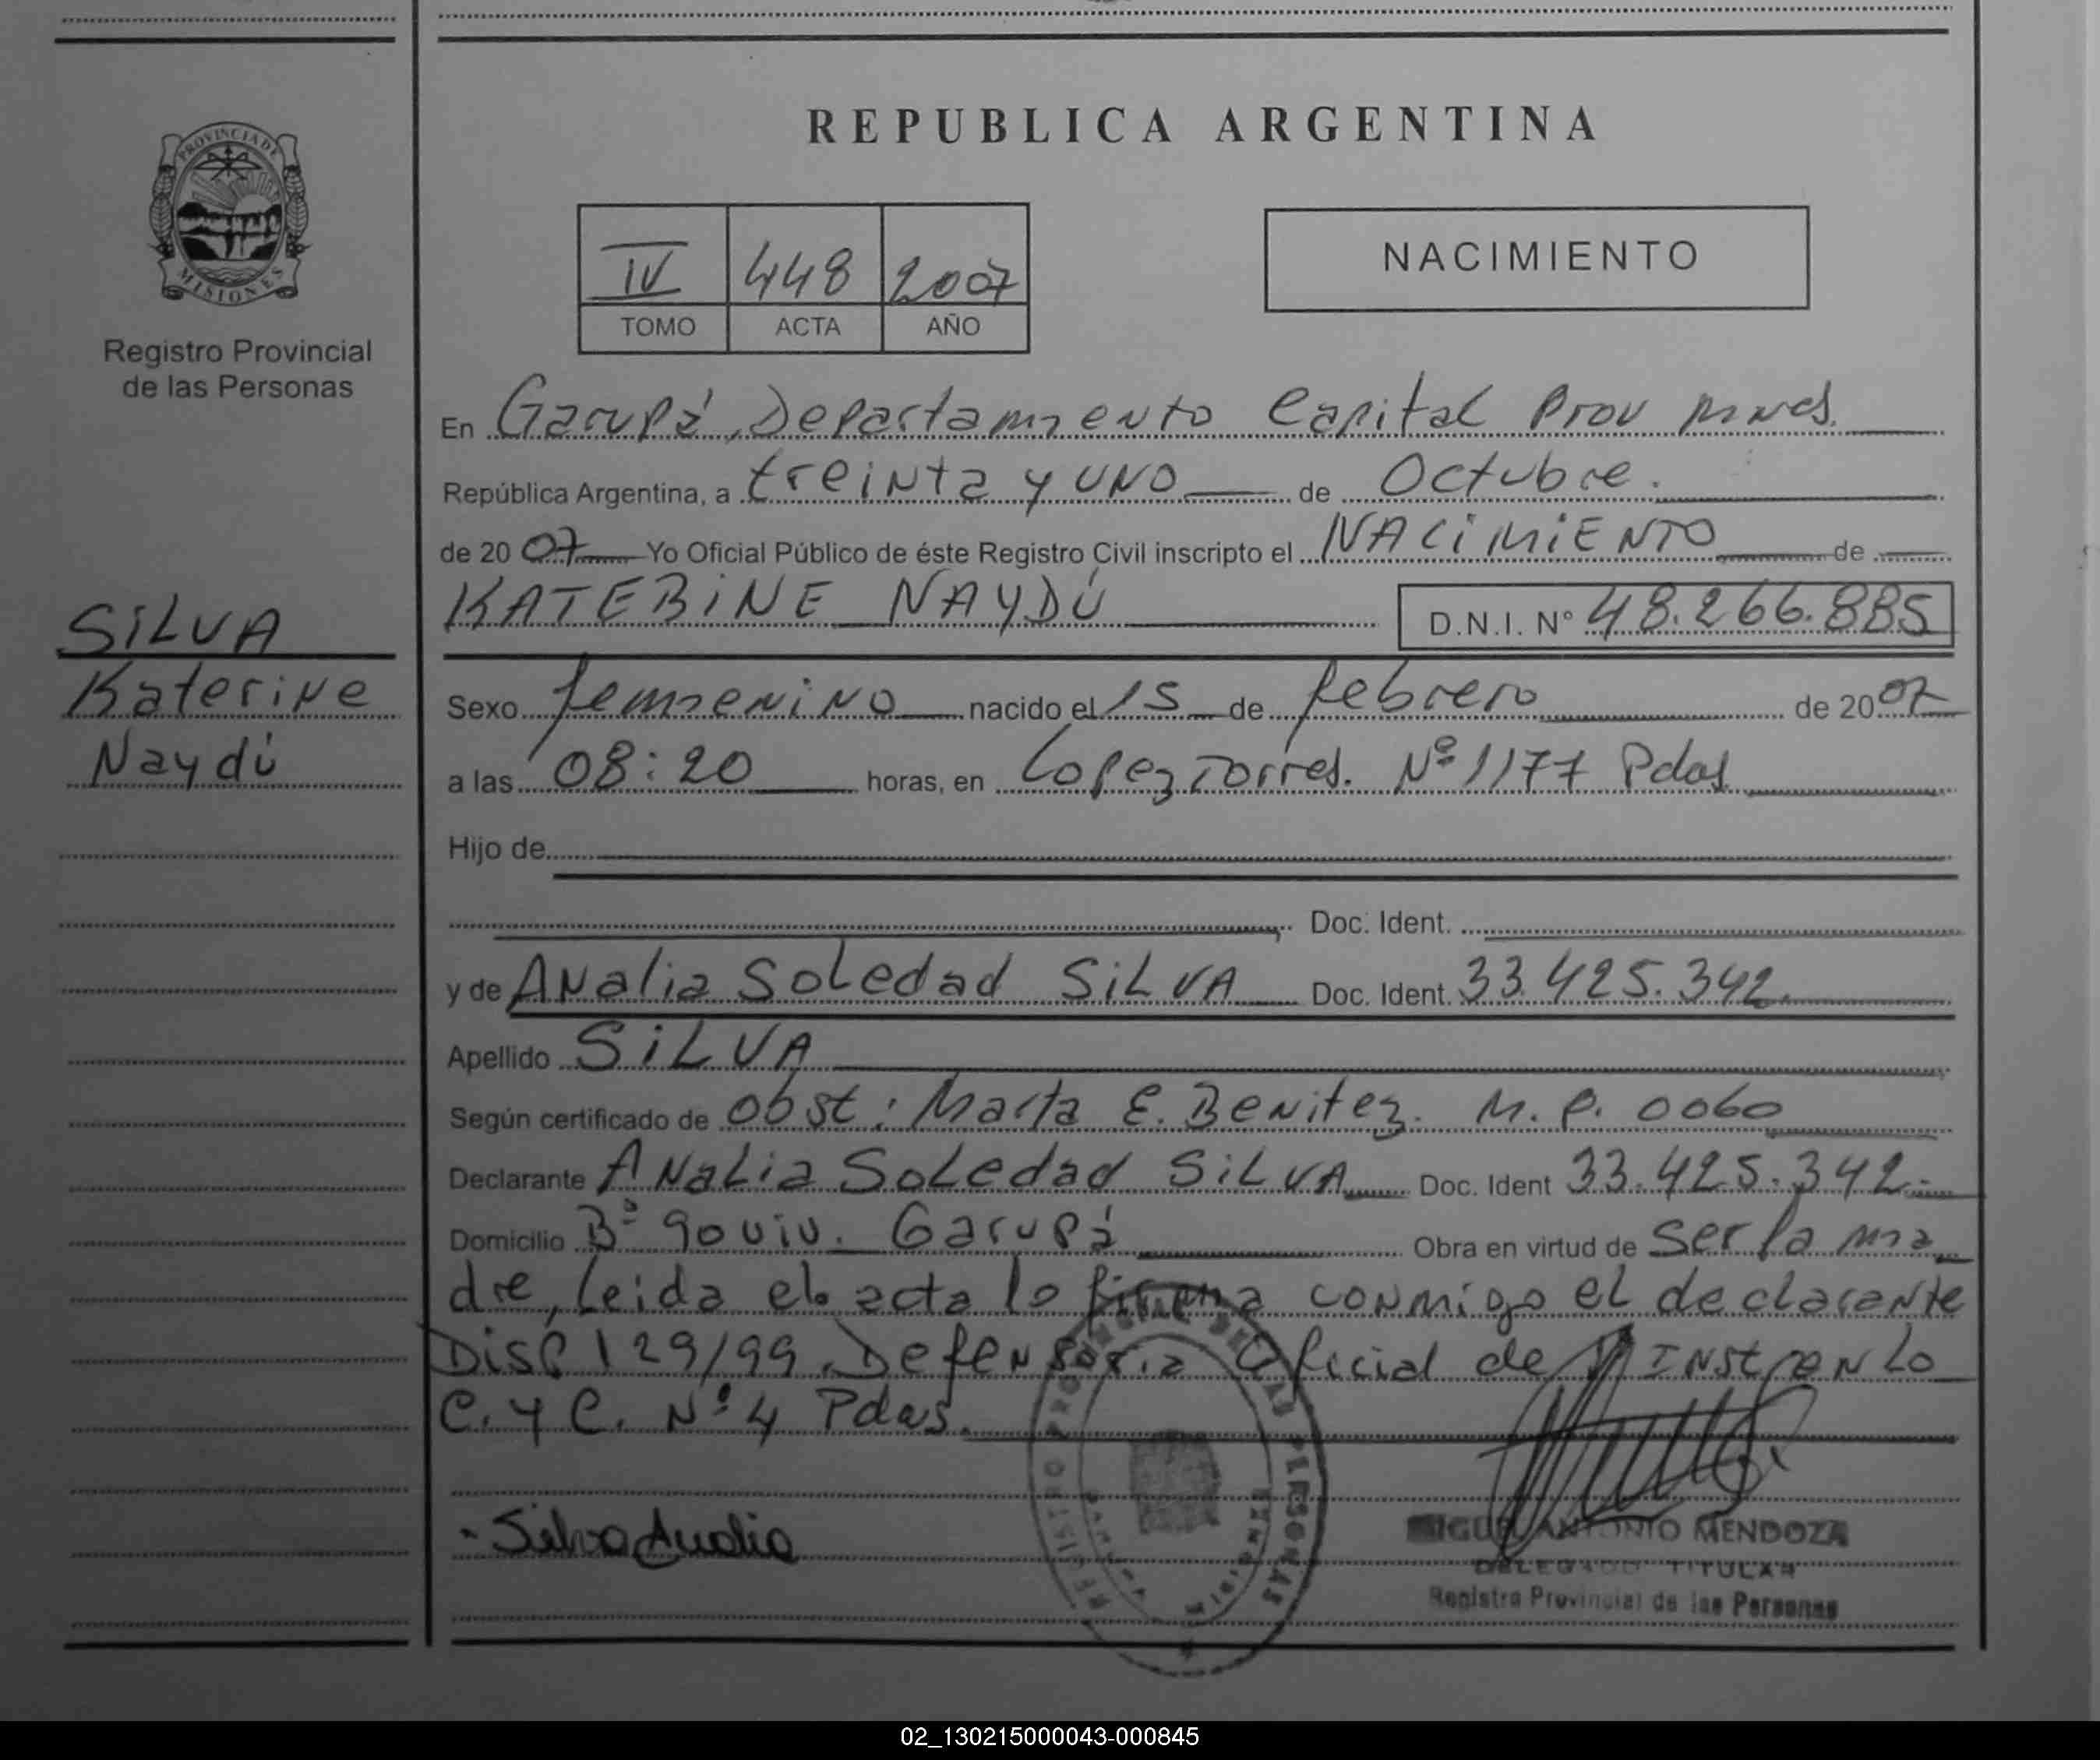 REPUBLICA ARGENTINA
PROVINCIA DE
MISIONES
Registro Provincial
de las Personas
IV 448 2007
TOMO ACTA AÑO
NACIMIENTO
En Garupá, Departamento Capital Prov Mnes.
República Argentina, a treinta y uno de Octubre.
de 2007 Yo Oficial Público de éste Registro Civil inscripto el NACIMIENTO de
KATERINE NAYDÚ D.N.I. Nº 48.266.885
SILVA
Katerine
Naydú
Sexo femenino nacido el 15 de febrero de 2007
a las 08:20 horas, en Lopez Torres. Nº 1177 Pdas
Hijo de
Doc. Ident.
y de Analia Soledad SILVA Doc. Ident. 33.425.342.
Apellido SILVA
Según certificado de obst: Marta E. Benitez. M.P. 0060
Declarante Analia Soledad SILVA Doc. Ident 33.425.342.
Domicilio Bº 90 viv. Garupá Obra en virtud de ser la ma
dre, leida el acta lo firma conmigo el declarante
Disp 129/99. Defensoria Oficial de Inst en lo
C. y C. Nº 4 Pdas.
Silva Analia
MIGUEL ANTONIO MENDOZA
DELEGADO TITULAR
Registro Provincial de las Personas
02_130215000043-000845